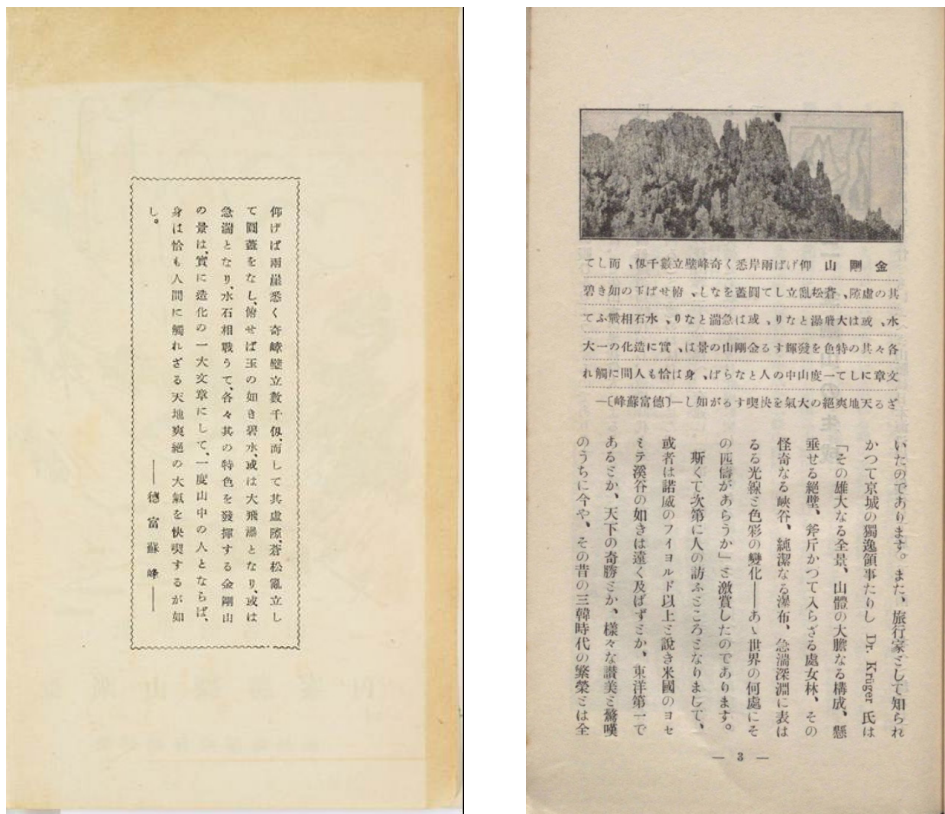 仰げば兩崖悉く奇峰壁立數千仭、而して其虛隙、蒼松亂立し
て圓蓋をなし、俯せば玉の如き碧水、或は大飛瀑となり、或は
急湍となり、水石相戰うて、各々其の特色を發揮する金剛山
の景は、實に造化の一大文章にして、一度山中の人とならば、
身は恰も人間に觸れざる天地爽絕の大氣を快喫するが如
し。
——德富蘇峰——
金剛山 仰げば兩岸悉く奇峰壁立巖千仭、而して
其の虛隙、蒼松亂立して圓蓋をなし、俯せば玉の如き碧
水、或は大飛瀑となり、或は急湍となり、水石相戰ふて
各々其の特色を發輝する金剛山の景は、實に造化の一大
文章にして一度山中の人とならば、身は恰も人間に觸れ
ざる天地爽絕の大氣を快喫するが如し—〔德富蘇峰〕—
いたのであります。また、旅行家として知られ
かつて京城の獨逸領事たりし Dr. Krüger 氏は
「その雄大なる全景、山體の大膽なる構成、懸
垂せる絕壁、斧斤かつて入らざる處女林、その
怪奇なる峽谷、純潔なる瀑布、急湍深淵に表は
るる光線と色彩の變化——あゝ世界の何處にそ
の匹儔があらうか」と激賞したのであります。
斯くて次第に人の訪ふところとなりまして、
或者は諾威のフイヨルド以上と說き米國のヨセ
ミテ溪谷の如きは遠く及ばずとか、東洋第一で
あるとか、天下の奇勝とか、樣々な讃美と驚嘆
のうちに今や、その昔の三韓時代の繁榮とは全
— 3 —